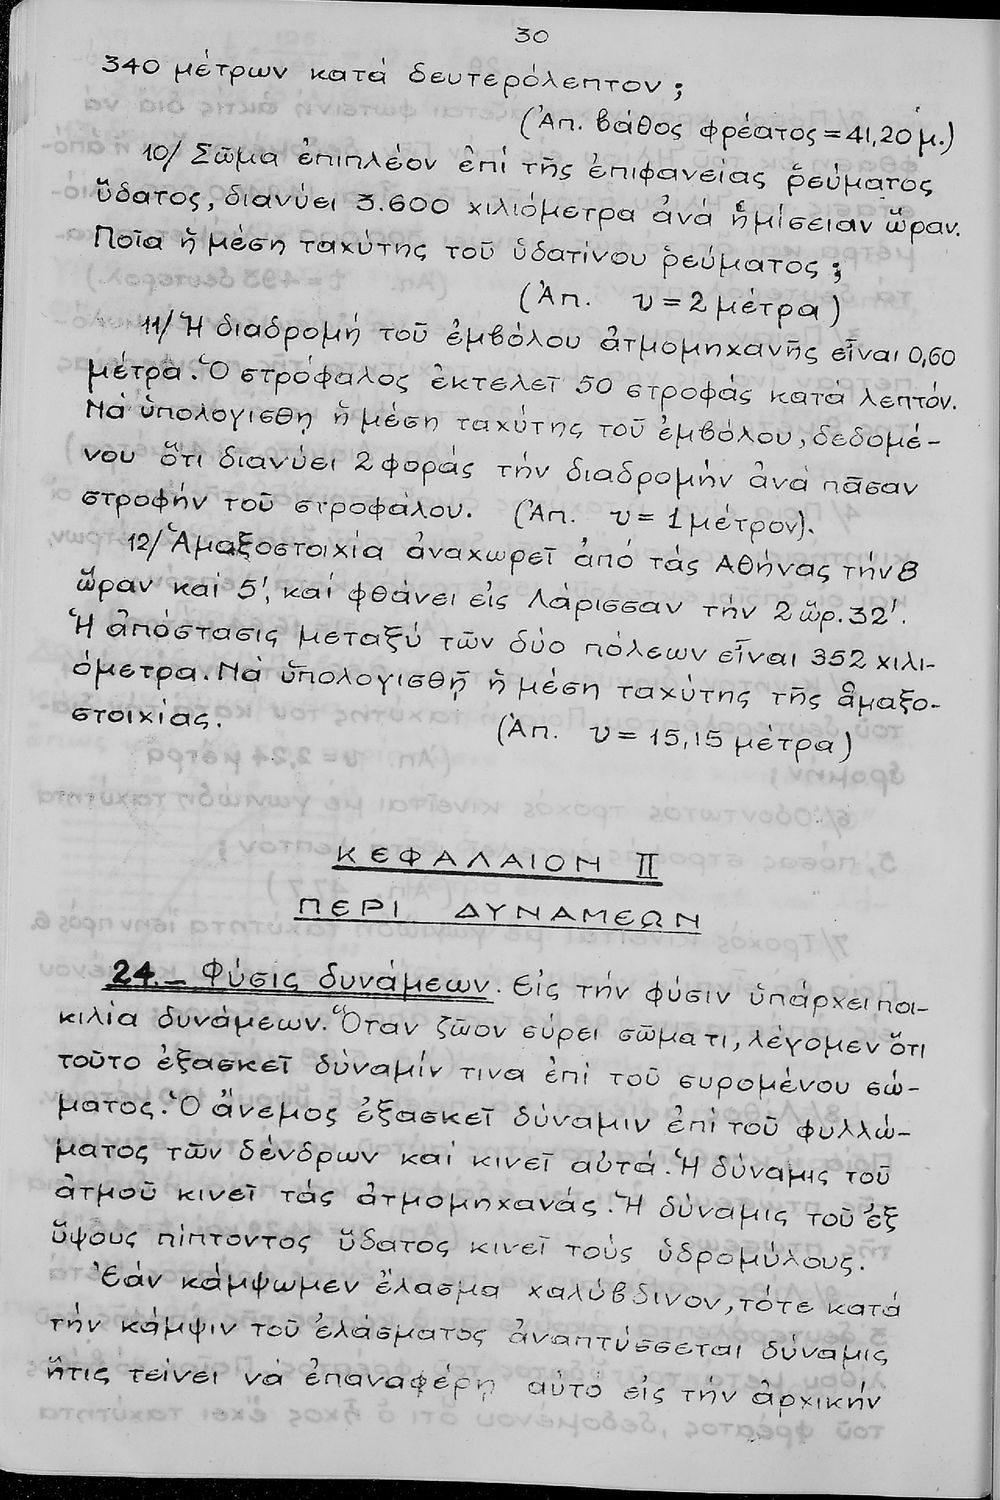 30
340 μέτρων κατά δευτερόλεπτον ;
(Ἀπ. βάθος φρέατος = 41,20 μ.)
10/ Σῶμα ἐπιπλέον ἐπί τῆς ἐπιφανείας ῥεύματος
ὕδατος, διανύει 3.600 χιλιόμετρα ἀνά ἡμίσειαν ὥραν.
Ποῖα ἡ μέση ταχύτης τοῦ ὑδατίνου ῥεύματος ;
(Ἀπ. υ = 2 μέτρα)
11/ Ἡ διαδρομή τοῦ ἐμβόλου ἀτμομηχανῆς εἶναι 0,60
μέτρα. Ὁ στρόφαλος ἐκτελεῖ 50 στροφάς κατά λεπτόν.
Νά ὑπολογισθῃ ἡ μέση ταχύτης τοῦ ἐμβόλου, δεδομέ-
νου ὅτι διανύει 2 φοράς τήν διαδρομήν ἀνά πᾶσαν
στροφήν τοῦ στροφάλου. (Ἀπ. υ = 1 μέτρον).
12/ Ἁμαξοστοιχία ἀναχωρεῖ ἀπό τάς Ἀθήνας τήν 8
ὥραν καί 5', καί φθάνει εἰς Λάρισσαν τήν 2 ὥρ. 32'.
Ἡ ἀπόστασις μεταξύ τῶν δύο πόλεων εἶναι 352 χιλι-
όμετρα. Νά ὑπολογισθῇ ἡ μέση ταχύτης τῆς ἁμαξο-
στοιχίας. (Ἀπ. υ = 15,15 μέτρα)
ΚΕΦΑΛΑΙΟΝ ΙΙ
ΠΕΡΙ ΔΥΝΑΜΕΩΝ
24.- Φύσις δυνάμεων. Εἰς τήν φύσιν ὑπάρχει ποι-
κιλία δυνάμεων. Ὅταν ζῶον σύρει σῶμα τι, λέγομεν ὅτι
τοῦτο ἐξασκεῖ δύναμίν τινα ἐπί τοῦ συρομένου σώ-
ματος. Ὁ ἄνεμος ἐξασκεῖ δύναμιν ἐπί τοῦ φυλλώ-
ματος τῶν δένδρων καί κινεῖ αὐτά. Ἡ δύναμις τοῦ
ἀτμοῦ κινεῖ τάς ἀτμομηχανάς. Ἡ δύναμις τοῦ ἐξ
ὕψους πίπτοντος ὕδατος κινεῖ τούς ὑδρομύλους.
Ἐάν κάμψωμεν ἔλασμα χαλύβδινον, τότε κατά
τήν κάμψιν τοῦ ἐλάσματος ἀναπτύσσεται δύναμις
ἥτις τείνει νά ἐπαναφέρῃ αὐτό εἰς τήν ἀρχικήν